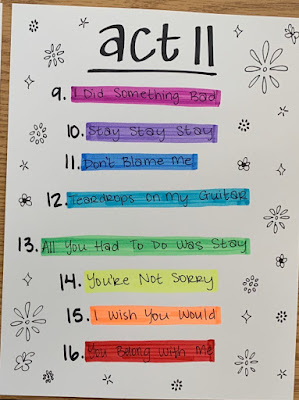 act II
9. I Did Something Bad
10. Stay Stay Stay
11. Don't Blame Me
12. Teardrops on My Guitar
13. All You Had To Do Was Stay
14. You're Not Sorry
15. I Wish You Would
16. You Belong With Me